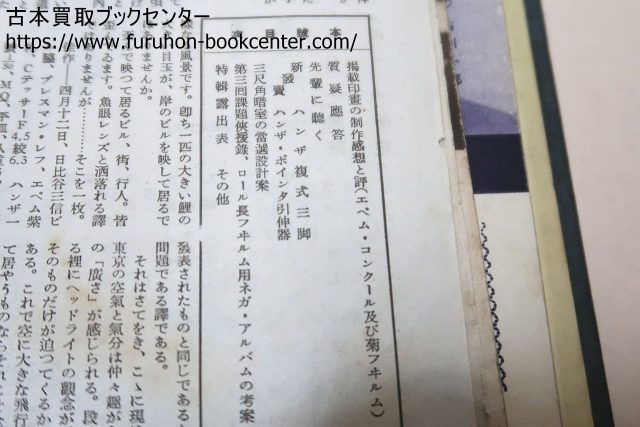 古本買取ブックセンター
https://www.furuhon-bookcenter.com/
本號目次
掲載印畫の制作感想と評(エベム・コンクール及び菊フヰルム)
質疑應答
先輩に聽く
新發賣 ハンザ複式三脚
ハンザ・ポインタ引伸器
三尺角暗室の當選設計案
第三回課題俠援錄、ロール長フヰルム用ネガ・アルバムの考案
特輯露出表 その他
な風景です。卽ち一匹の大きい鯉の
目玉が、岸のビルを映して居るで
はありませんか。
で映つて居るビル、街、行人。皆
ゐます。魚眼レンズと洒落れる譯
りませんが……そこを一枚。
作――四月十二日、日比谷三信ビ
脇、プレスマン・レフ、エベム紫
Cテッサー F4.5 6.3
發表されたものと同じである
問題である譯である。
それはさてをき、こゝに現
東京の空氣と氣分は仲々趣が
の「廣さ」が感じられる。段
る裡にヘッドライトの觀念が
そのものだけが迫つてくるか
ある。これで空に大きな飛行
て居やうものならそれこそ